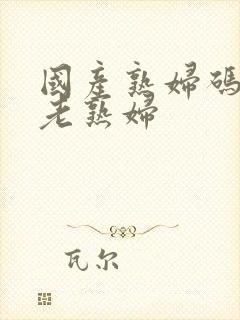 國産熟婦碼
老熟婦
瓦尔